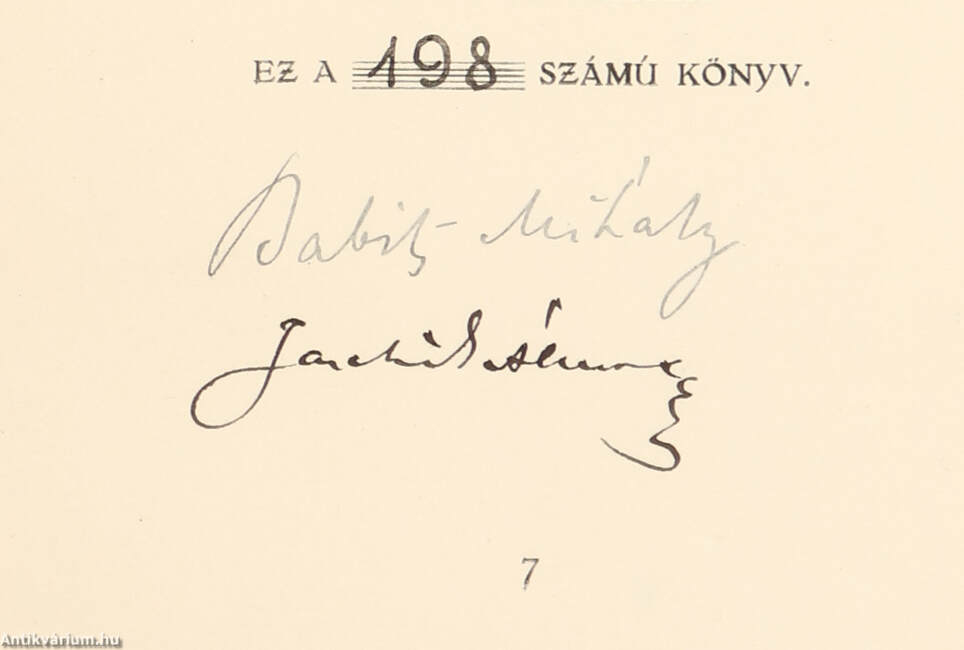 EZ A 198 SZÁMÚ KÖNYV.
Babits Mihály
Jaschik Álmos
7
Antikvárium.hu